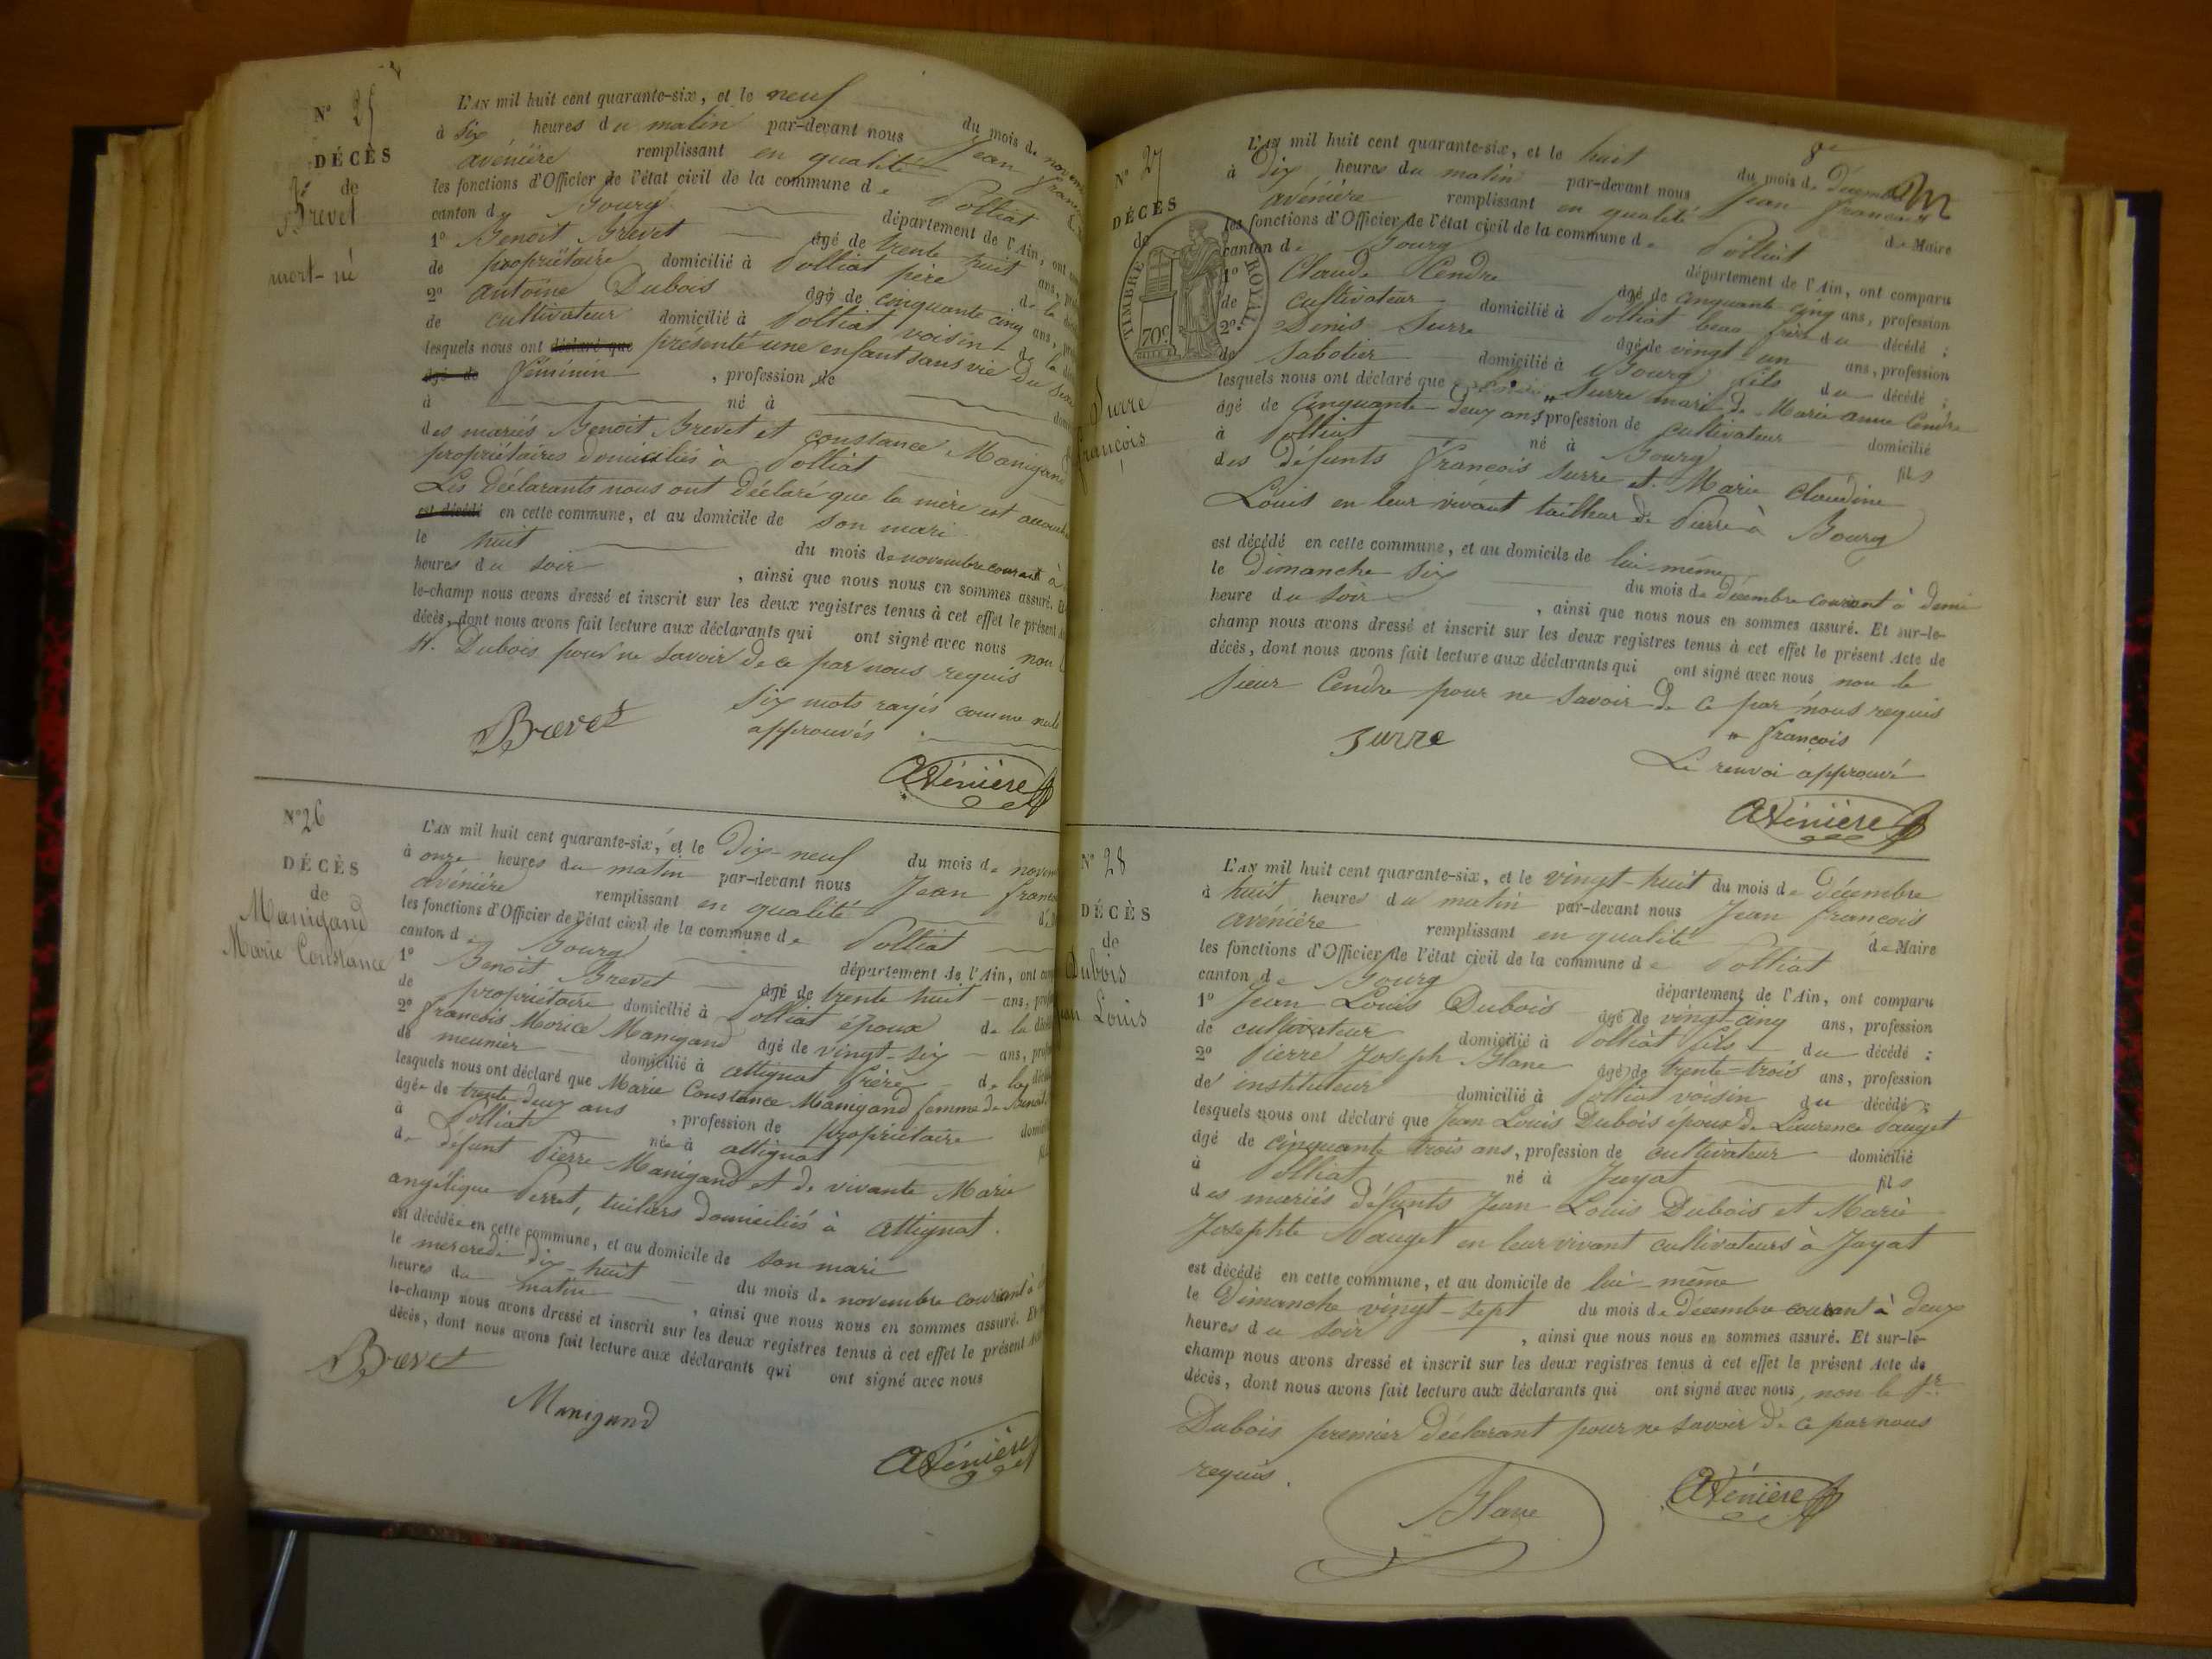 N° 25
DÉCÈS
de
Brevet
mort-né
L'AN mil huit cent quarante-six, et le neuf du mois de
à six heures du matin par-devant nous Jean
avénière remplissant en qualité
les fonctions d'Officier de l'état civil de la commune de Polliat
canton de Bourg département de l'Ain, ont
1° Benoit Brevet âgé de trente huit ans,
de propriétaire domicilié à Polliat père de la
2° antoine Dubois âgé de cinquante cinq ans,
de cultivateur domicilié à Polliat voisin de la
lesquels nous ont déclaré que présenté une enfant sans vie du sexe
âgé de féminin , profession de
à né à
des mariés Benoit Brevet et constance Manigand
propriétaires domiciliés à Polliat
Les Déclarants nous ont déclaré que la mère est
est décédé en cette commune, et au domicile de son mari
le huit du mois de novembre courant à
heures du soir , ainsi que nous nous en sommes assuré.
le-champ nous avons dressé et inscrit sur les deux registres tenus à cet effet le présent
décès, dont nous avons fait lecture aux déclarants qui ont signé avec nous non
Dubois pour ne savoir de ce par nous requis
Six mots rayés comme nuls
approuvés
Brevet
Avénière
N° 26
DÉCÈS
de
Manigand
Marie Constance
L'AN mil huit cent quarante-six, et le dix-neuf du mois de
à onze heures du matin par-devant nous Jean
avénière remplissant en qualité
les fonctions d'Officier de l'état civil de la commune de Polliat
canton de Bourg département de l'Ain, ont
1° Benoit Brevet âgé de trente huit ans,
de propriétaire domicilié à Polliat époux de la
2° françois Morice Manigand âgé de vingt-six ans,
de meunier domicilié à attignat frère de la
lesquels nous ont déclaré que Marie Constance Manigand femme de Benoit
âgée de trente deux ans , profession de propriétaire
à Polliat née à attignat
de défunt Pierre Manigand et de vivante Marie
angélique Perret, tuiliers domiciliés à attignat.
est décédée en cette commune, et au domicile de son mari
le mercredi dix-huit du mois de novembre courant à
heures du matin , ainsi que nous nous en sommes assuré.
le-champ nous avons dressé et inscrit sur les deux registres tenus à cet effet le présent
décès, dont nous avons fait lecture aux déclarants qui ont signé avec nous
Brevet
Manigand
Avénière
N° 27
DÉCÈS
de
Surre
françois
TIMBRE ROYAL
70c
L'AN mil huit cent quarante-six, et le huit du mois de Décembre
à dix heures du matin par-devant nous Jean francois
avénière remplissant en qualité de Maire
les fonctions d'Officier de l'état civil de la commune de Polliat
canton de Bourg département de l'Ain, ont comparu
1° Claude Cendre âgé de cinquante cinq ans, profession
de cultivateur domicilié à Polliat beau frère du décédé ;
2° Denis Surre âgé de vingt un ans, profession
de Sabotier domicilié à Bourg fils du décédé ;
lesquels nous ont déclaré que Surre mari de Marie anne Cendre
âgé de cinquante-deux ans, profession de cultivateur domicilié
à Polliat né à Bourg fils
des défunts françois Surre et Marie Claudine
Louis en leur vivant tailleur de Pierre à Bourg
est décédé en cette commune, et au domicile de lui-même
le Dimanche six du mois de décembre courant à demi
heure du soir , ainsi que nous nous en sommes assuré. Et sur-le-
champ nous avons dressé et inscrit sur les deux registres tenus à cet effet le présent Acte de
décès, dont nous avons fait lecture aux déclarants qui ont signé avec nous non le
sieur Cendre pour ne savoir de ce par nous requis
" françois
Le renvoi approuvé
Surre
Avénière
N° 28
DÉCÈS
de
Dubois
Louis
L'AN mil huit cent quarante-six, et le vingt-huit du mois de décembre
à huit heures du matin par-devant nous Jean francois
avénière remplissant en qualité de Maire
les fonctions d'Officier de l'état civil de la commune de Polliat
canton de Bourg département de l'Ain, ont comparu
1° Jean Louis Dubois âgé de vingt-cinq ans, profession
de cultivateur domicilié à Polliat fils du décédé ;
2° Pierre Joseph Blanc âgé de trente-trois ans, profession
de instituteur domicilié à Polliat voisin du décédé ;
lesquels nous ont déclaré que Jean Louis Dubois époux de Laurence Pauget
âgé de cinquante trois ans, profession de cultivateur domicilié
à Polliat né à Jayat fils
des mariés défunts Jean Louis Dubois et Marie
Josephte Nauget en leur vivant cultivateurs à Jayat
est décédé en cette commune, et au domicile de lui-même
le Dimanche vingt-sept du mois de Décembre courant à deux
heures du soir , ainsi que nous nous en sommes assuré. Et sur-le-
champ nous avons dressé et inscrit sur les deux registres tenus à cet effet le présent Acte de
décès, dont nous avons fait lecture aux déclarants qui ont signé avec nous, non le Sr
Dubois premier déclarant pour ne savoir de ce par nous
requis.
Blanc
Avénière